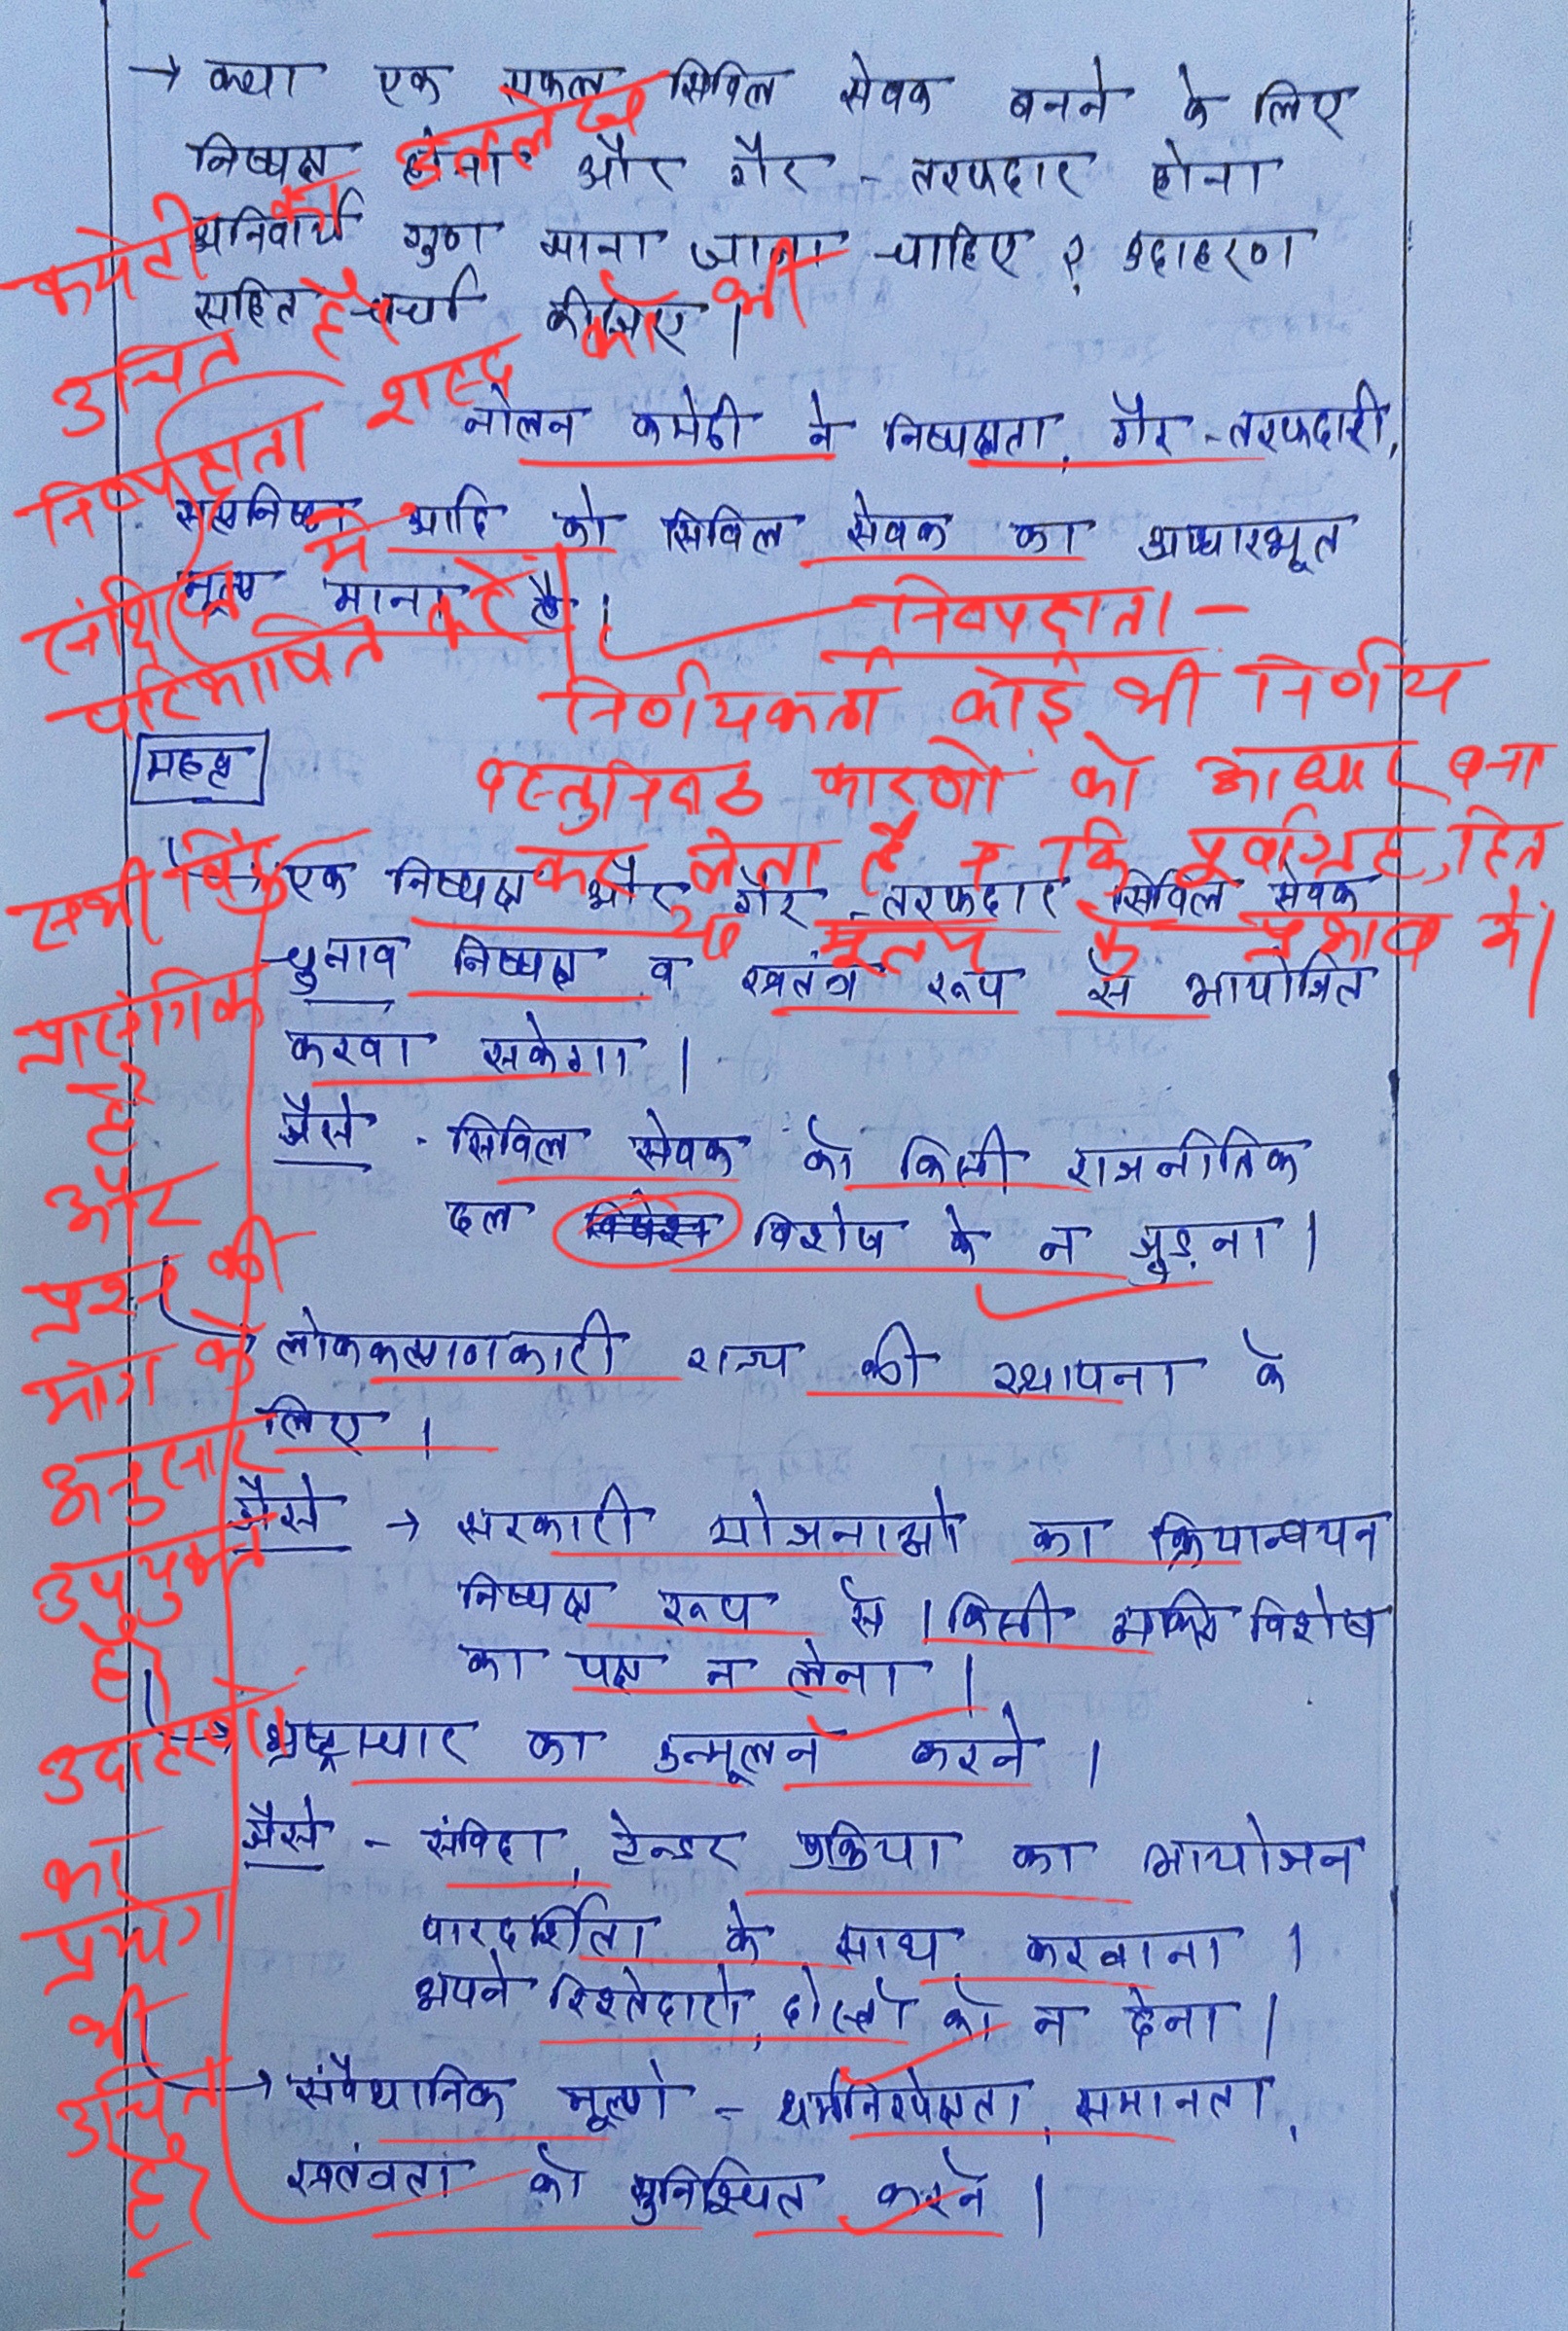 → क्या एक सफल सिविल सेवक बनने के लिए
निष्पक्ष होना और गैर - तरफदार होना
अनिवार्य गुण माना जाना चाहिए ? उदाहरण
सहित चर्चा कीजिए ।
कमेटी का उल्लेख
उचित है
निष्पक्षता शब्द को भी
संक्षिप्त में
परिभाषित करें
नोलन कमेटी ने निष्पक्षता, गैर - तरफदारी,
सत्यनिष्ठा आदि को सिविल सेवक का आधारभूत
मूल्य माना है ।
निष्पक्षता -
निर्णयकर्ता कोई भी निर्णय
वस्तुनिष्ठ कारणों को आधार बना
कर लेता है न कि पूर्वाग्रह, हित
व मूल्य के प्रभाव में।
महत्व
→ एक निष्पक्ष और गैर - तरफदार सिविल सेवक
चुनाव निष्पक्ष व स्वतंत्र रूप से आयोजित
करवा सकेगा ।
जैसे - सिविल सेवक को किसी राजनीतिक
दल विशेष के न जुड़ना ।
→ लोककल्याणकारी राज्य की स्थापना के
लिए ।
जैसे → सरकारी योजनाओं का क्रियान्वयन
निष्पक्ष रूप से । किसी व्यक्ति विशेष
का पक्ष न लेना ।
→ भ्रष्ट्राचार का उन्मूलन करने ।
जैसे - संविदा, टेन्डर प्रक्रिया का आयोजन
पारदर्शिता के साथ करवाना ।
अपने रिश्तेदारो, दोस्तों को न देना ।
→ संवैधानिक मूल्यो - धर्मनिरपेक्षता, समानता,
स्वतंत्रता को सुनिश्चित करने ।
सभी बिंदु
प्रासंगिक
है
और
प्रश्न की
मांग के
अनुसार
उपयुक्त
है।
उदाहरणों
का
प्रयोग
भी
उचित
है